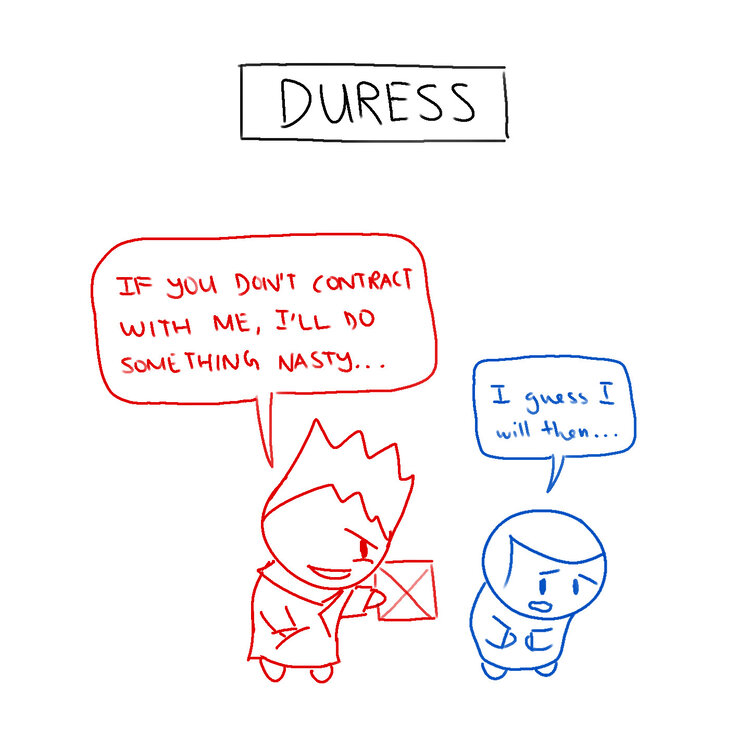 DURESS
IF YOU DON'T CONTRACT
WITH ME, I'LL DO
SOMETHING NASTY...
I guess I
will then...